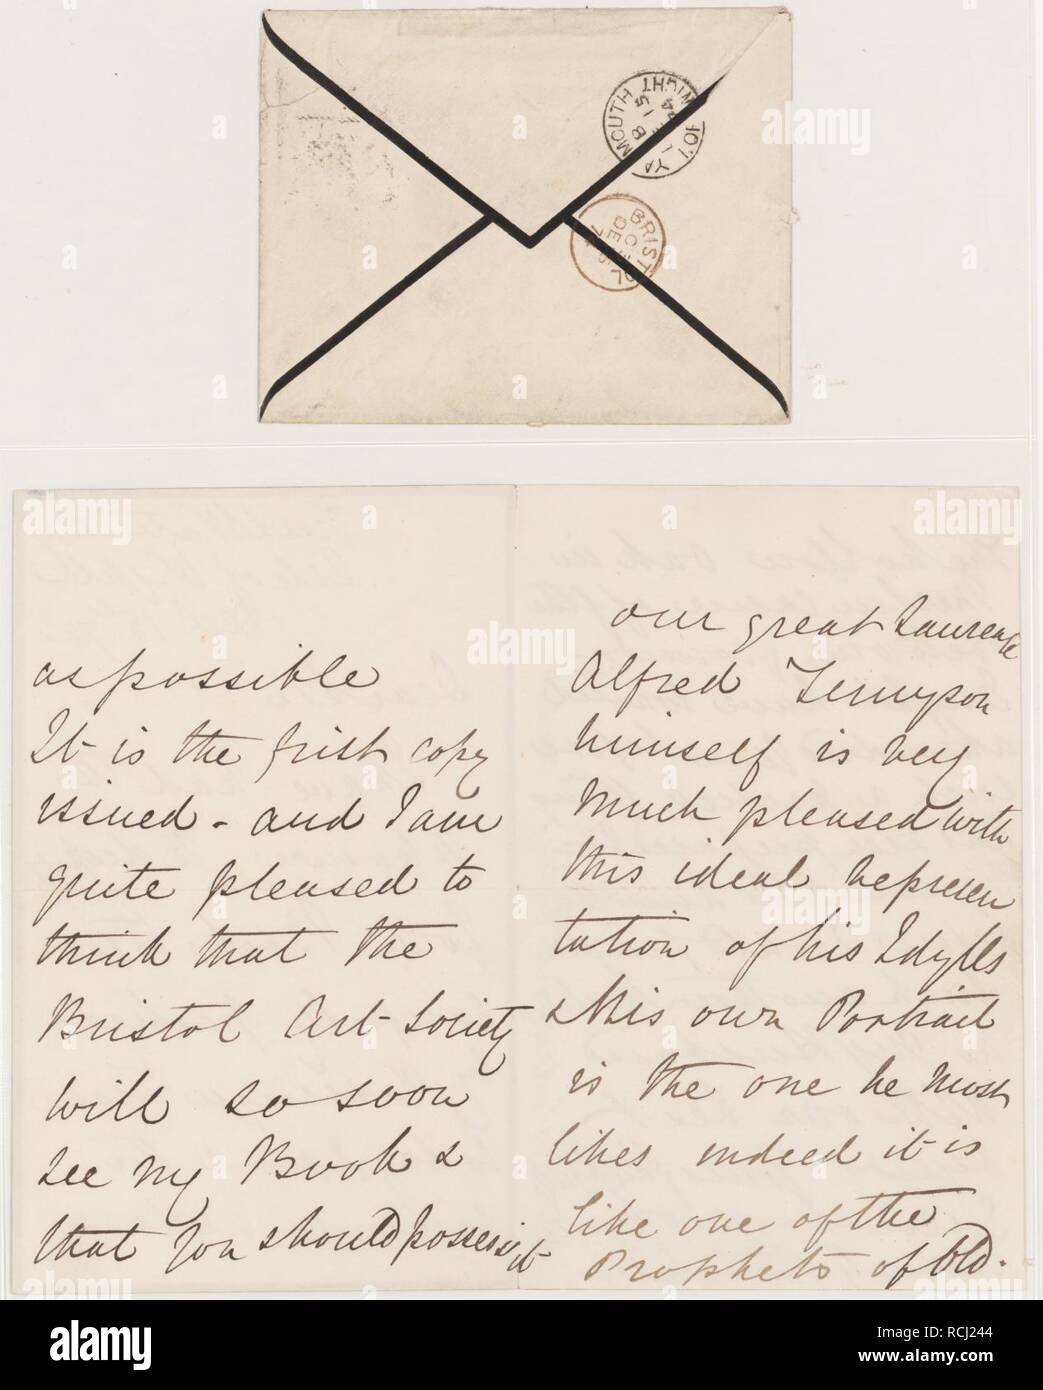 YARMOUTH I. OF WIGHT
15
BRISTOL
DE
as possible
It is the first copy
issued - and I am
quite pleased to
think that the
Bristol Art Society
will so soon
see my Book &
that you should possess it
our great Laureate
Alfred Tennyson
himself is very
much pleased with
this ideal represen
tation of his Idylls
& this own Portrait
is the one he most
likes indeed it is
like one of the
Prophets of Old.
alamy
a
alamy
Image ID: RCJ244
www.alamy.com